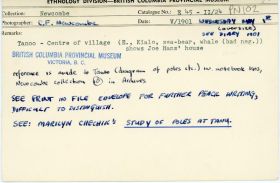 ETHNOLOGY DIVISION—BRITISH COLUMBIA PROVINCIAL MUSEUM
Photographer: Catalogue No.:
C.F. Newcombe V/1901 WEDNESDAY MAY
SEE DIARY 1901
Remarks:
Tanoo - Centre of village (E., Kialo, sea-bear, whale (bad neg.))
shows Joe Hans' house
BRITISH COLUMBIA PROVINCIAL MUSEUM
VICTORIA, B. C.
reference is made to Tanoo (diagram of poles etc.) in notebook
Newcombe collection in Archives
SEE PRINT IN FILE ENVELOPE FOR FURTHER PENCIL WRITING,
DIFFICULT TO DISTINGUISH.
SEE: MARILYN CHECHIK'S STUDY OF POLES AT TANU.